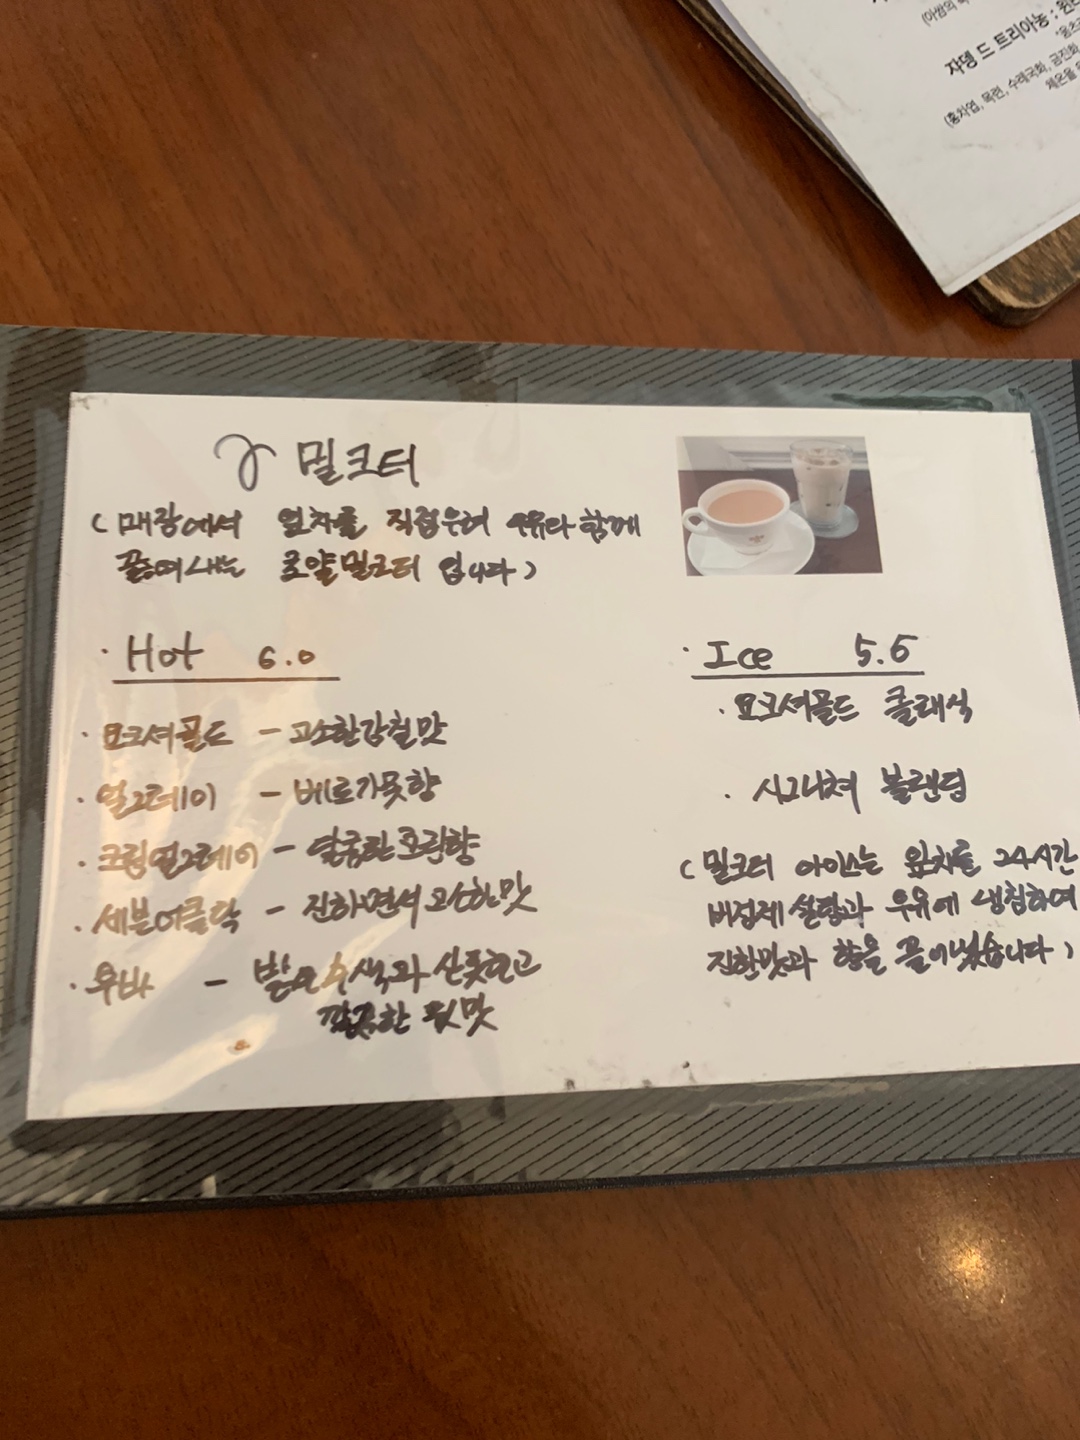 밀크티
(매장에서 잎차를 직접우려 우유와 함께
끓여내는 로얄밀크티 입니다)
· Hot 6.0
· 요크셔골드 - 고소한감칠맛
· 얼그레이 - 베르가못향
· 크림얼그레이 - 달콤한크림향
· 세븐어클락 - 진하면서 고소한맛
· 우바 - 밝은 수색과 산뜻하고
깔끔한 뒷맛
· Ice 5.5
· 요크셔골드 클래식
· 시그니쳐 블랜딩
(밀크티 아이스는 잎차를 24시간
비정제 설탕과 우유에 냉침하여
진한맛과 향을 끌어냈습니다)
쟈뎅 드 트리아농 :
(홍차엽, 목련, 수레국화,